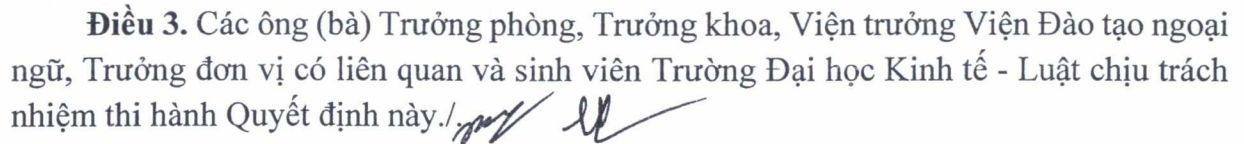 Điều 3. Các ông (bà) Trưởng phòng, Trưởng khoa, Viện trưởng Viện Đào tạo ngoại
ngữ, Trưởng đơn vị có liên quan và sinh viên Trường Đại học Kinh tế - Luật chịu trách
nhiệm thi hành Quyết định này./.